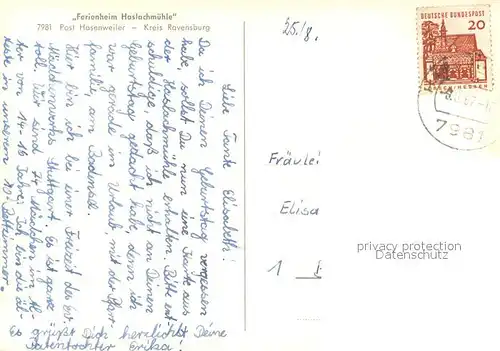 „Ferienheim Haslachmühle"
7981 Post Hasenweiler – Kreis Ravensburg
Liebe Tante Elisabeth!
Da ich Deinen Geburtstag vergessen
habe, sollst Du nun eine Karte aus
der Haslachmühle erhalten. Bitte ent-
schuldige, daß ich nicht an Deinen
Geburtstag gedacht habe, denn ich
war gerade im Urlaub, mit der Pfarr
familie, am Bodensee.
Hier bin ich bei einer Freizeit des Ev.
Mädchenwerks Stuttgart. Es ist ganz
toll. Wir sind 74 Mädchen im Al-
ter von 14-16 Jahre. Ich bin die äl-
teste in unserem 10 Bettzimmer.
Es grüßt Dich herzlichst Deine
Patentochter Erika!
25./8.
DEUTSCHE BUNDESPOST
20
LORSCH/HESSEN
7981
Fräulei
Elisa
1
privacy protection
Datenschutz